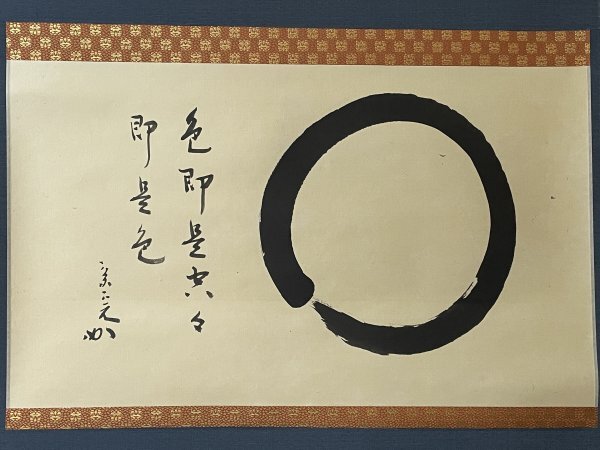 色即是空々
即是色